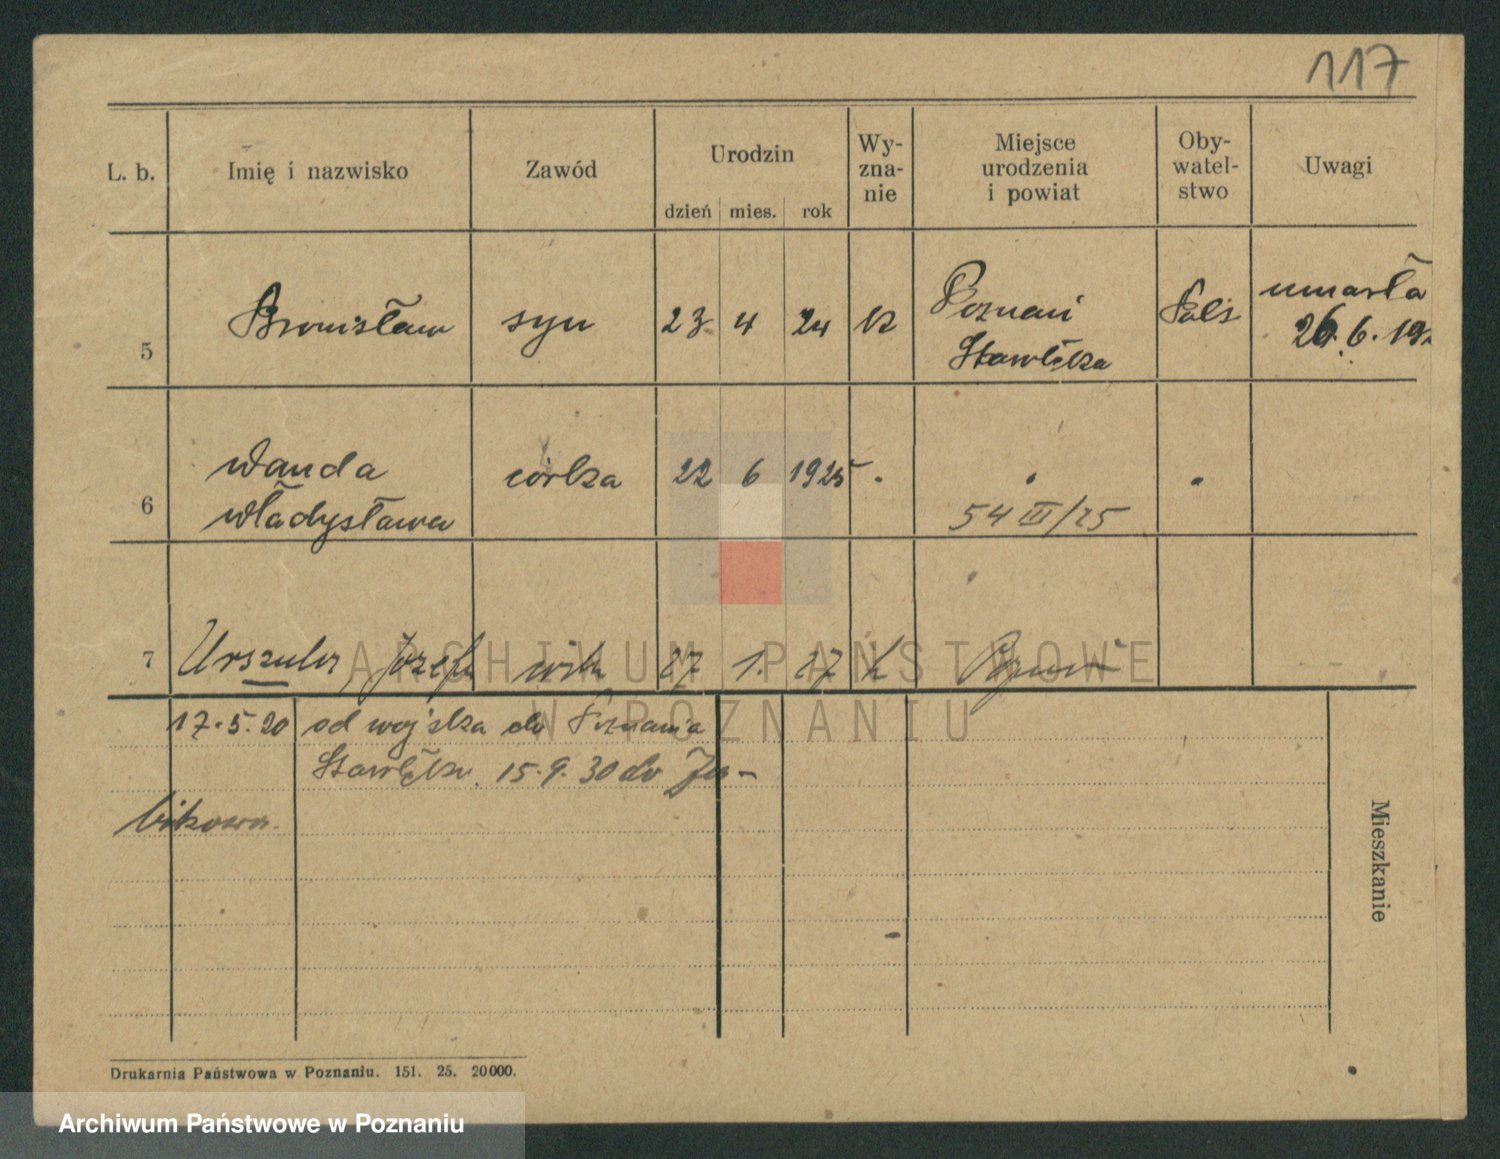 117
L. b.
Imię i nazwisko
Zawód
Urodzin
dzień mies. rok
Wy-
zna-
nie
Miejsce
urodzenia
i powiat
Oby-
watel-
stwo
Uwagi
5 Bronisław syn 23 4 24 k Poznań
Starołęka
Pols
umarła
26.6.19
6 Wanda
Władysława
córka 22 6 1925 - .
54 III/25
7 Urszula, Józefa córka 27 1. 27 k Poznań
17.5.20 od wojska do Poznania
Starołęka. 15.9.30 do Ża-
bikowa.
Mieszkanie
Drukarnia Państwowa w Poznaniu. 151. 25. 20000.
ARCHIWUM PAŃSTWOWE
W POZNANIU
Archiwum Państwowe w Poznaniu